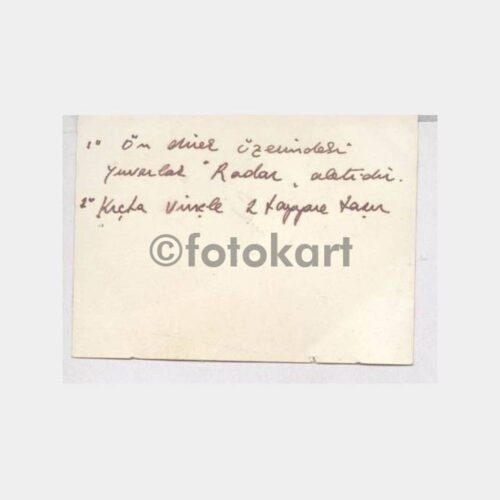 1° Ön direk üzerindeki
yuvarlak "Radar" aletidir.
2° Kıçta vinçle 2 tayyare taşır
©fotokart